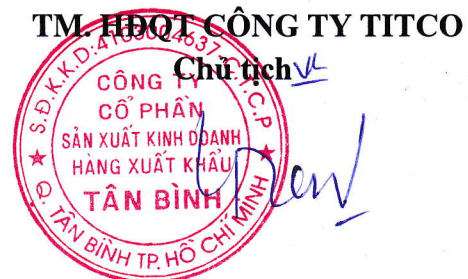 TM. HĐQT CÔNG TY TITCO
Chủ tịch
S.Đ.K.K.D:4103004637-C.T.C.P
CÔNG TY
CỔ PHẦN
SẢN XUẤT KINH DOANH
HÀNG XUẤT KHẨU
TÂN BÌNH
Q. TÂN BÌNH TP. HỒ CHÍ MINH